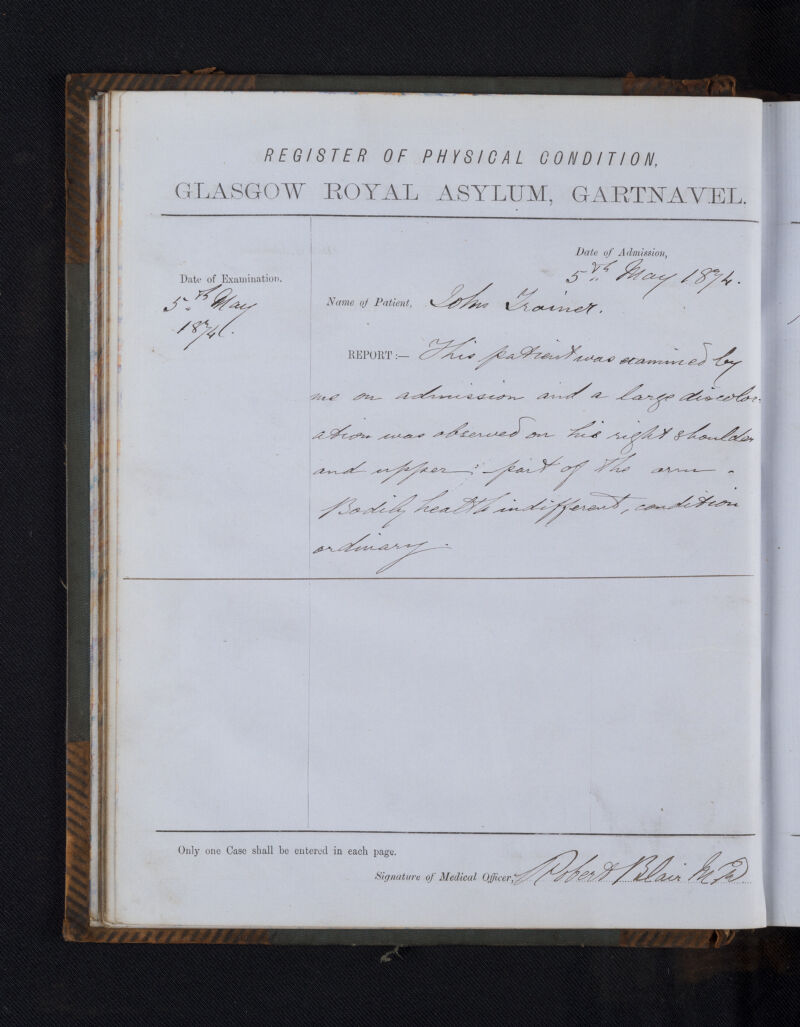 REGISTER OF PHYSICAL CONDITION,
GLASGOW ROYAL ASYLUM, GARTNAVEL.
Date of Admission,
5th May 1874.
Date of Examination.
5th May
1874.
Name of Patient, John Trainer.
REPORT:— This patient was examined by
me on admission and a large discolor-
ation was observed on his right shoulder
and upper part of the arm.
Bodily health indifferent, condition
ordinary.
Only one Case shall be entered in each page.
Signature of Medical Officer, Robert Blair M.D